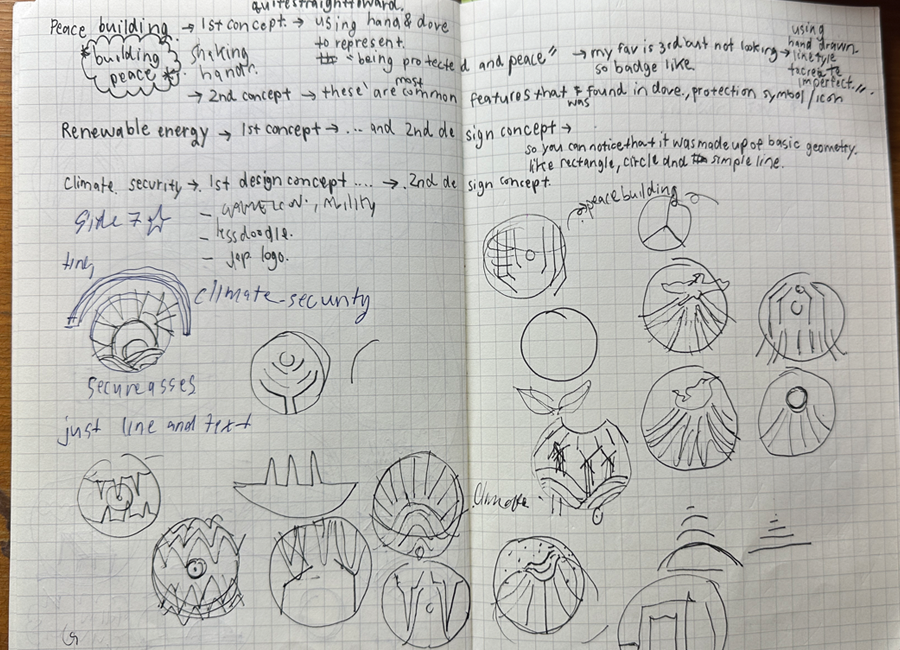 quitestraightfoward.
Peace building. → 1st concept → using hand & dove
to represent.
"being protected and peace" → my fav is 3rd but not looking →
so badge like
using
hand drawn
line style
to create
imperfect."
*building
peace*
shaking
hand
→ 2nd concept → these are most common features that was found in dove, protection symbol/icon
Renewable energy → 1st concept → ... and 2nd design concept →
so you can notice that it was made up of basic geometry.
like rectangle, circle and simple line.
Climate security → 1st design concept .... → 2nd design concept.
-
-
- jap logo.
peace building
climate-security
secure asses
just line and text
Climate